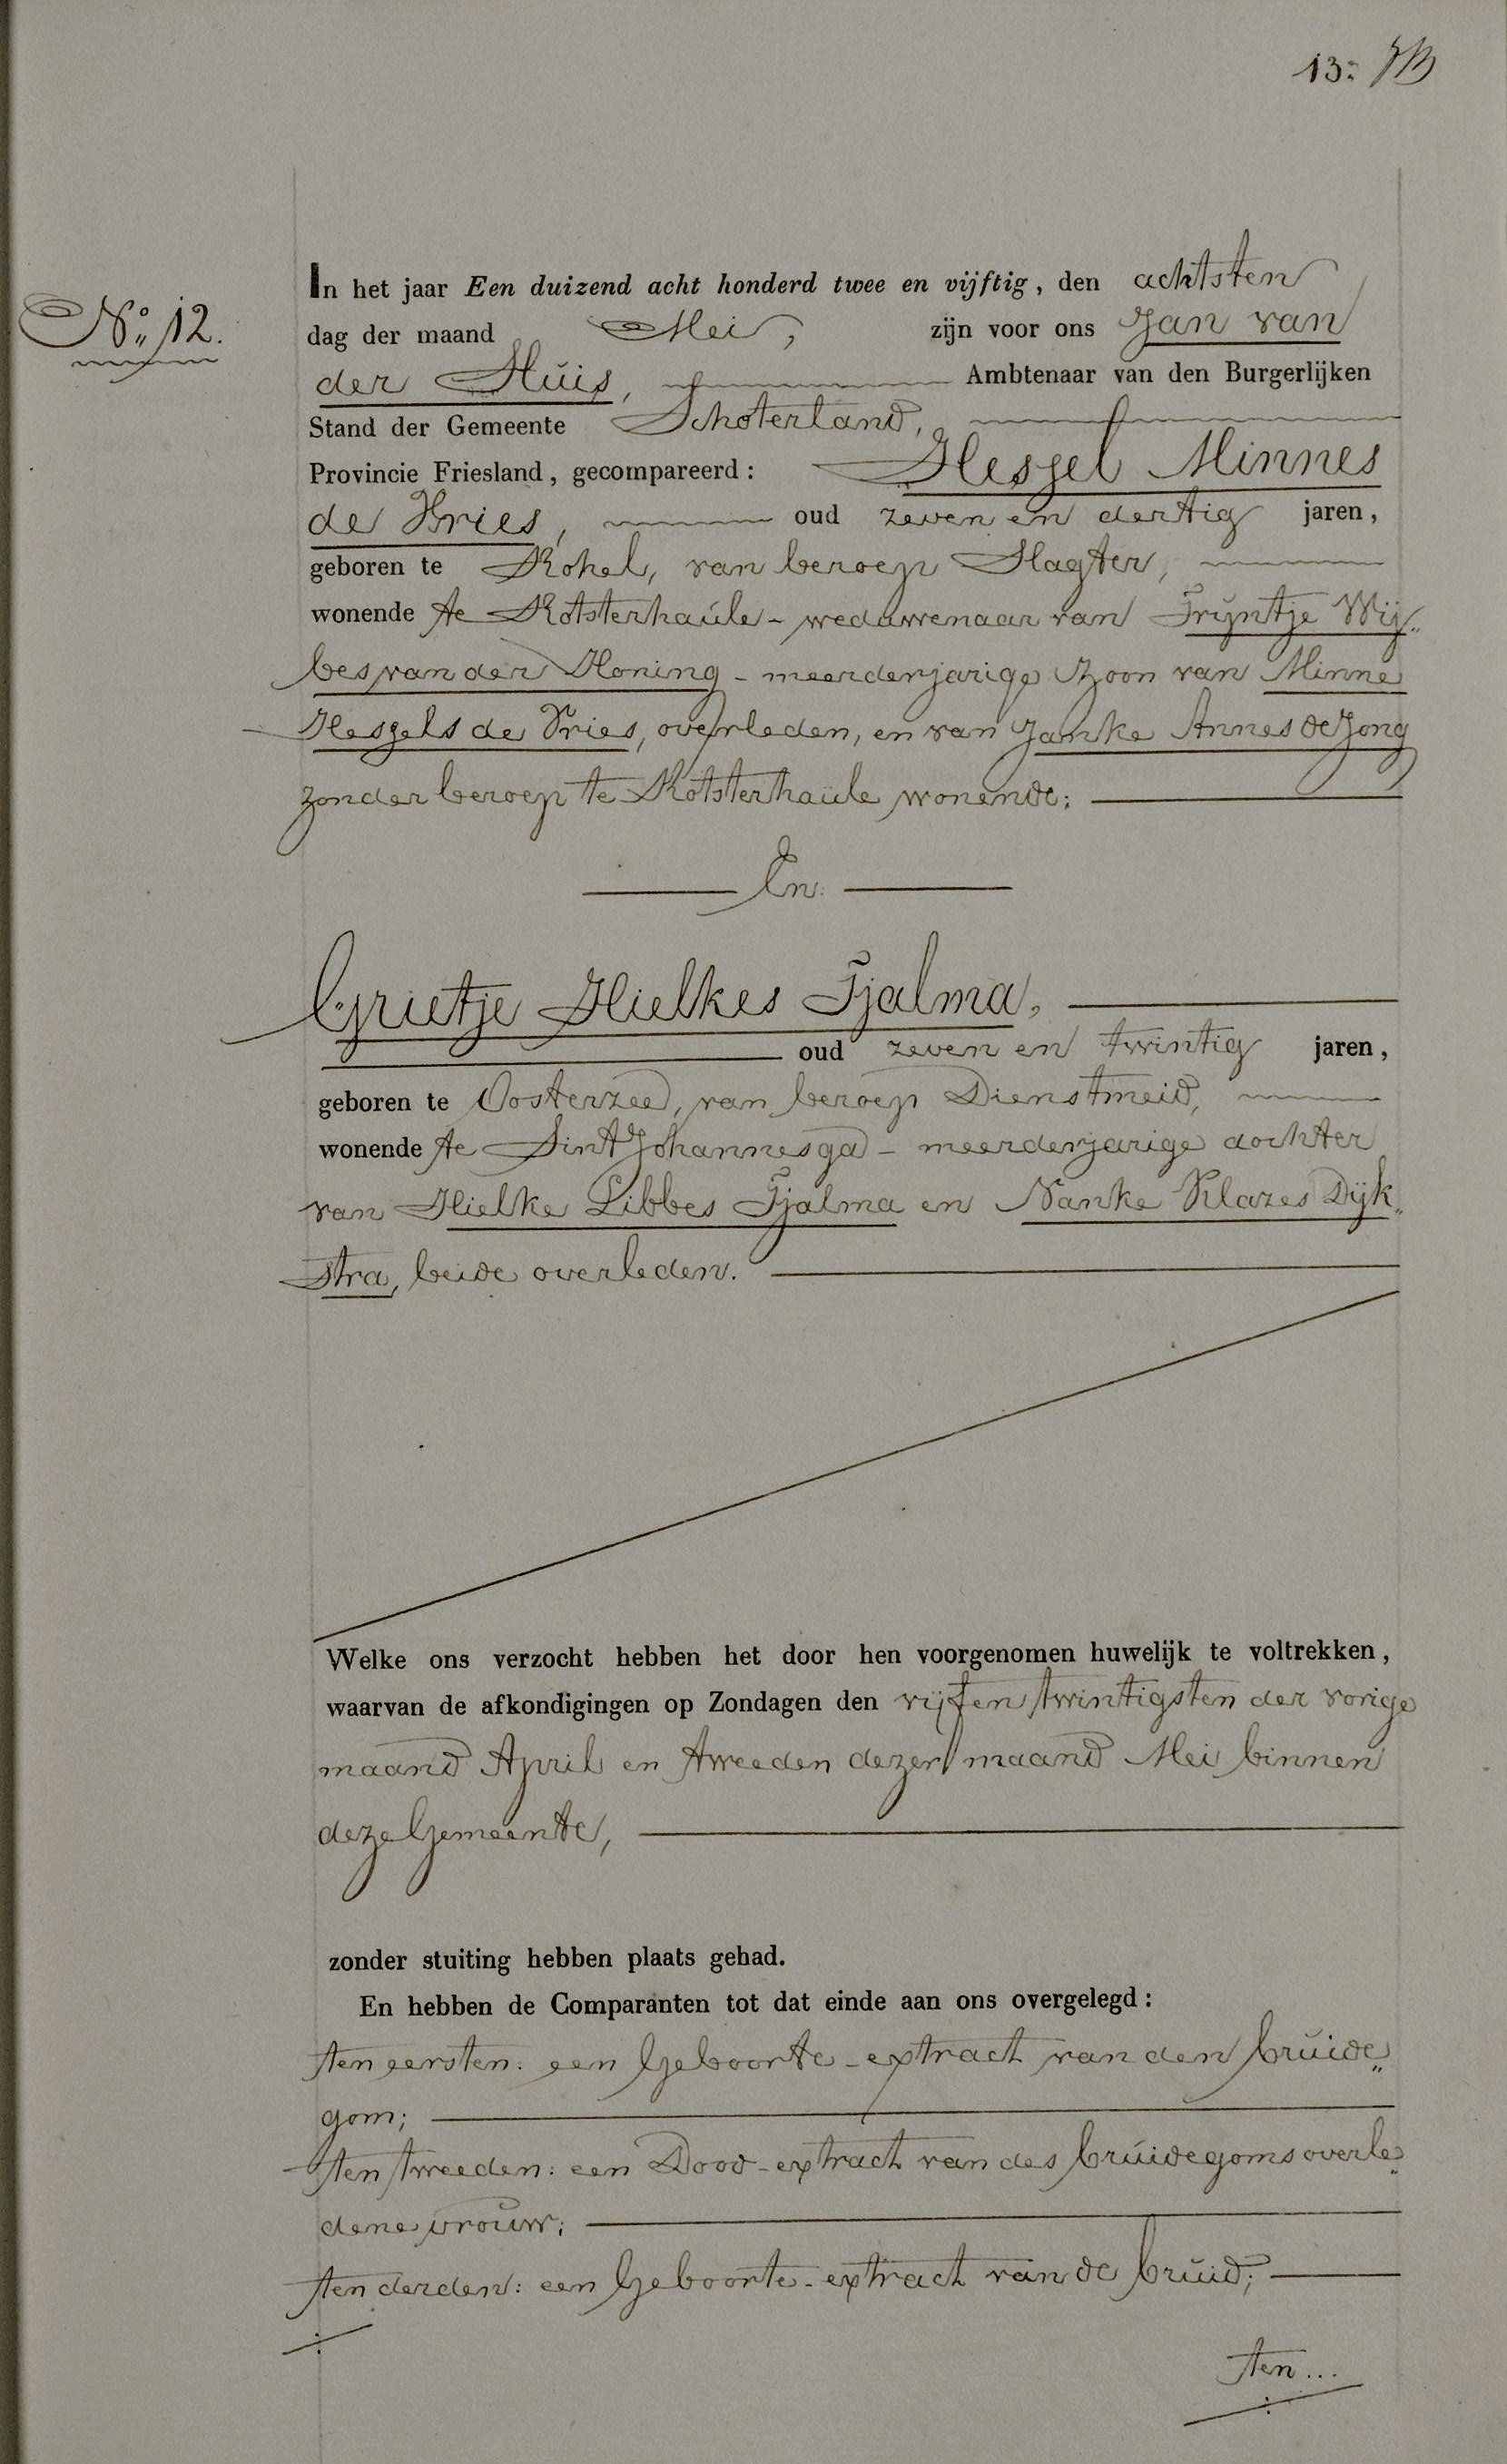 13:
No. 12.
In het jaar Een duizend acht honderd twee en vijftig, den achtsten
dag der maand Mei, zijn voor ons Jan van
der Sluis, Ambtenaar van den Burgerlijken
Stand der Gemeente Schoterland,
Provincie Friesland, gecompareerd: Hessel Minnes
de Vries, oud zeven en dertig jaren,
geboren te Rohel, van beroep Slagter,
wonende te Rotsterhaule - weduwenaar van Trijntje Wij„
bes van der Honing - meerderjarige Zoon van Minne
Hessels de Vries, overleden, en van Janke Annes de Jong
zonder beroep te Rotsterhaule wonende;
En
Grietje Hielkes Tjalma,
oud zeven en twintig jaren,
geboren te Oosterzee, van beroep Dienstmeid,
wonende te Sint Johannesga - meerderjarige dochter
van Hielke Libbes Tjalma en Nanke Klazes Dijk„
stra, beide overleden.
Welke ons verzocht hebben het door hen voorgenomen huwelijk te voltrekken,
waarvan de afkondigingen op Zondagen den vijfen twintigsten der vorige
maand April en tweeden dezer maand Mei binnen
deze Gemeente,
zonder stuiting hebben plaats gehad.
En hebben de Comparanten tot dat einde aan ons overgelegd:
ten eersten: een Geboorte-extract van den bruide„
gom;
ten tweeden: een Dood-extract van des bruidegoms overle„
dene vrouw;
ten derden: een Geboorte-extract van de bruid;
ten...